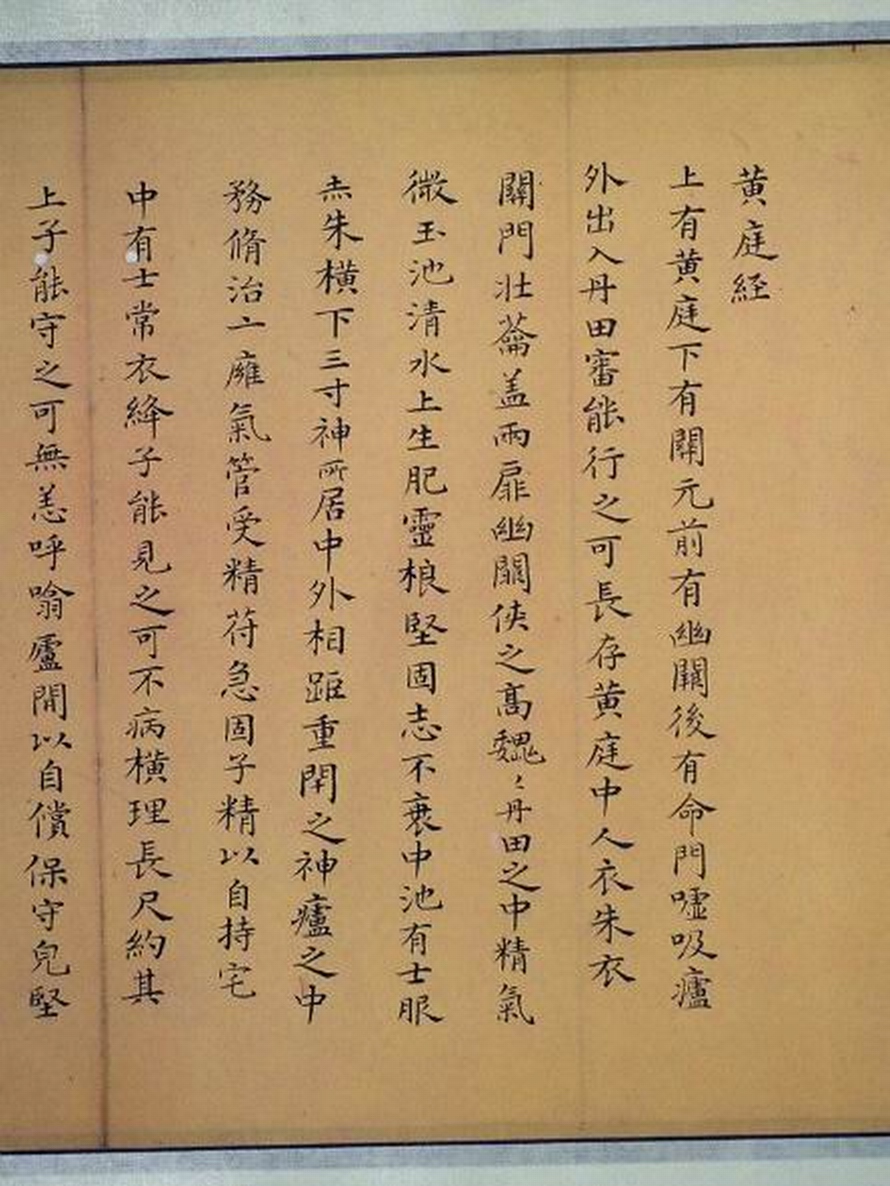 黄庭経
上有黄庭下有關元前有幽關後有命門嘘吸廬
外出入丹田審能行之可長存黄庭中人衣朱衣
關門壮蘥盖兩扉幽關俠之髙魏〻丹田之中精氣
微玉池清水上生肥靈根堅固志不衰中池有士服
赤朱横下三寸神所居中外相距重閇之神廬之中
務脩治亠廱氣管受精苻急固子精以自持宅
中有士常衣絳子能見之可不病横理長尺約其
上子能守之可無恙呼噏廬閒以自償保守皃堅